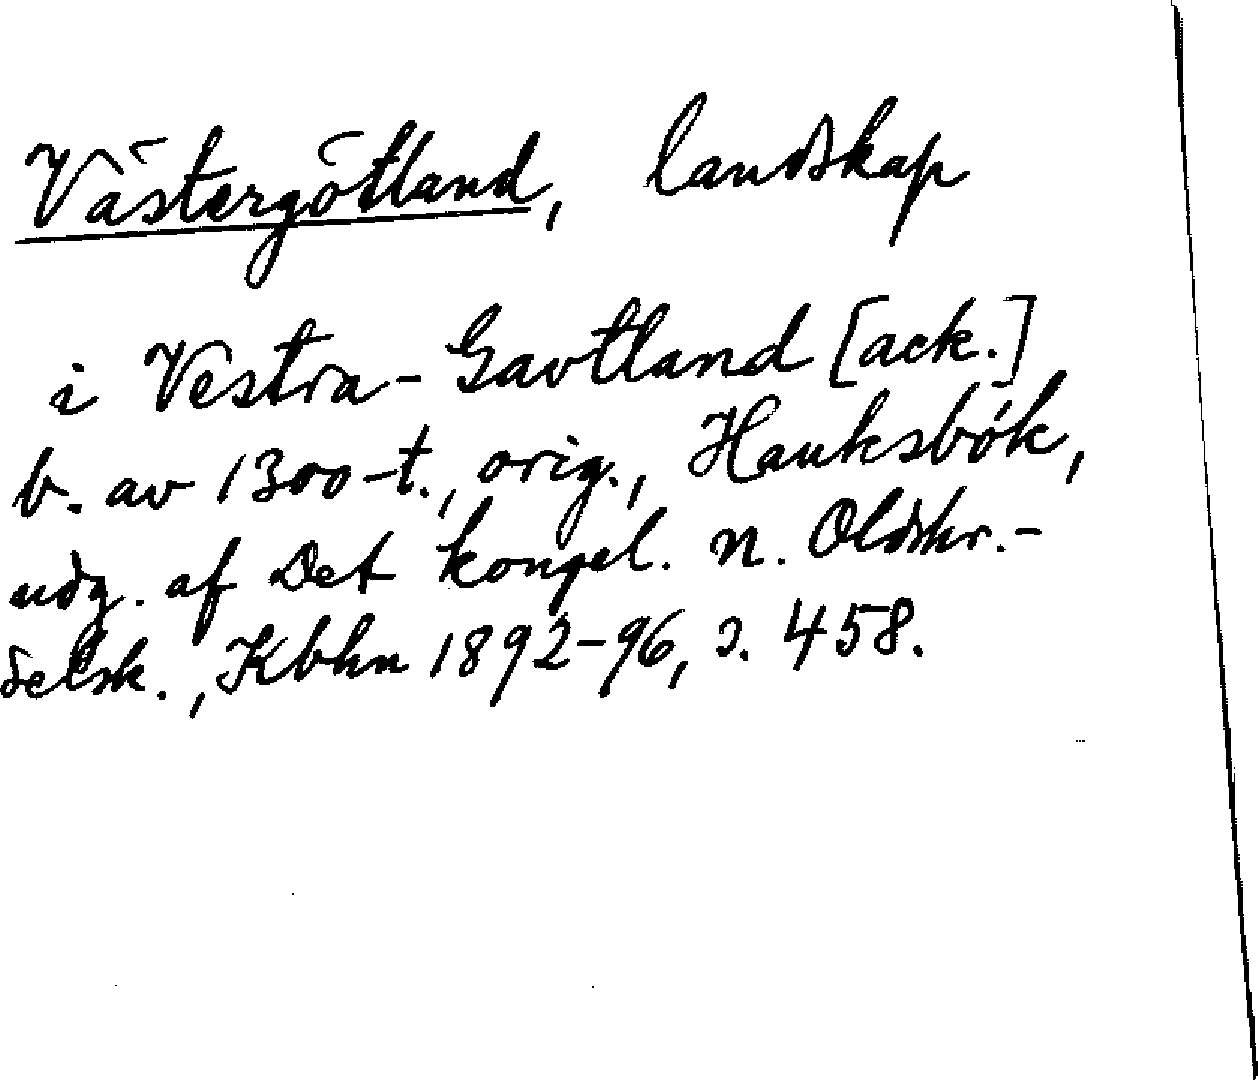 Västergötland, landskap
i Vestra-Gavtland [ack.]
b. av 1300-t., orig., Hauksbók,
udg. af Det kongel. n. Oldskr.-
selsk., Kbhn 1892-96, s. 458.